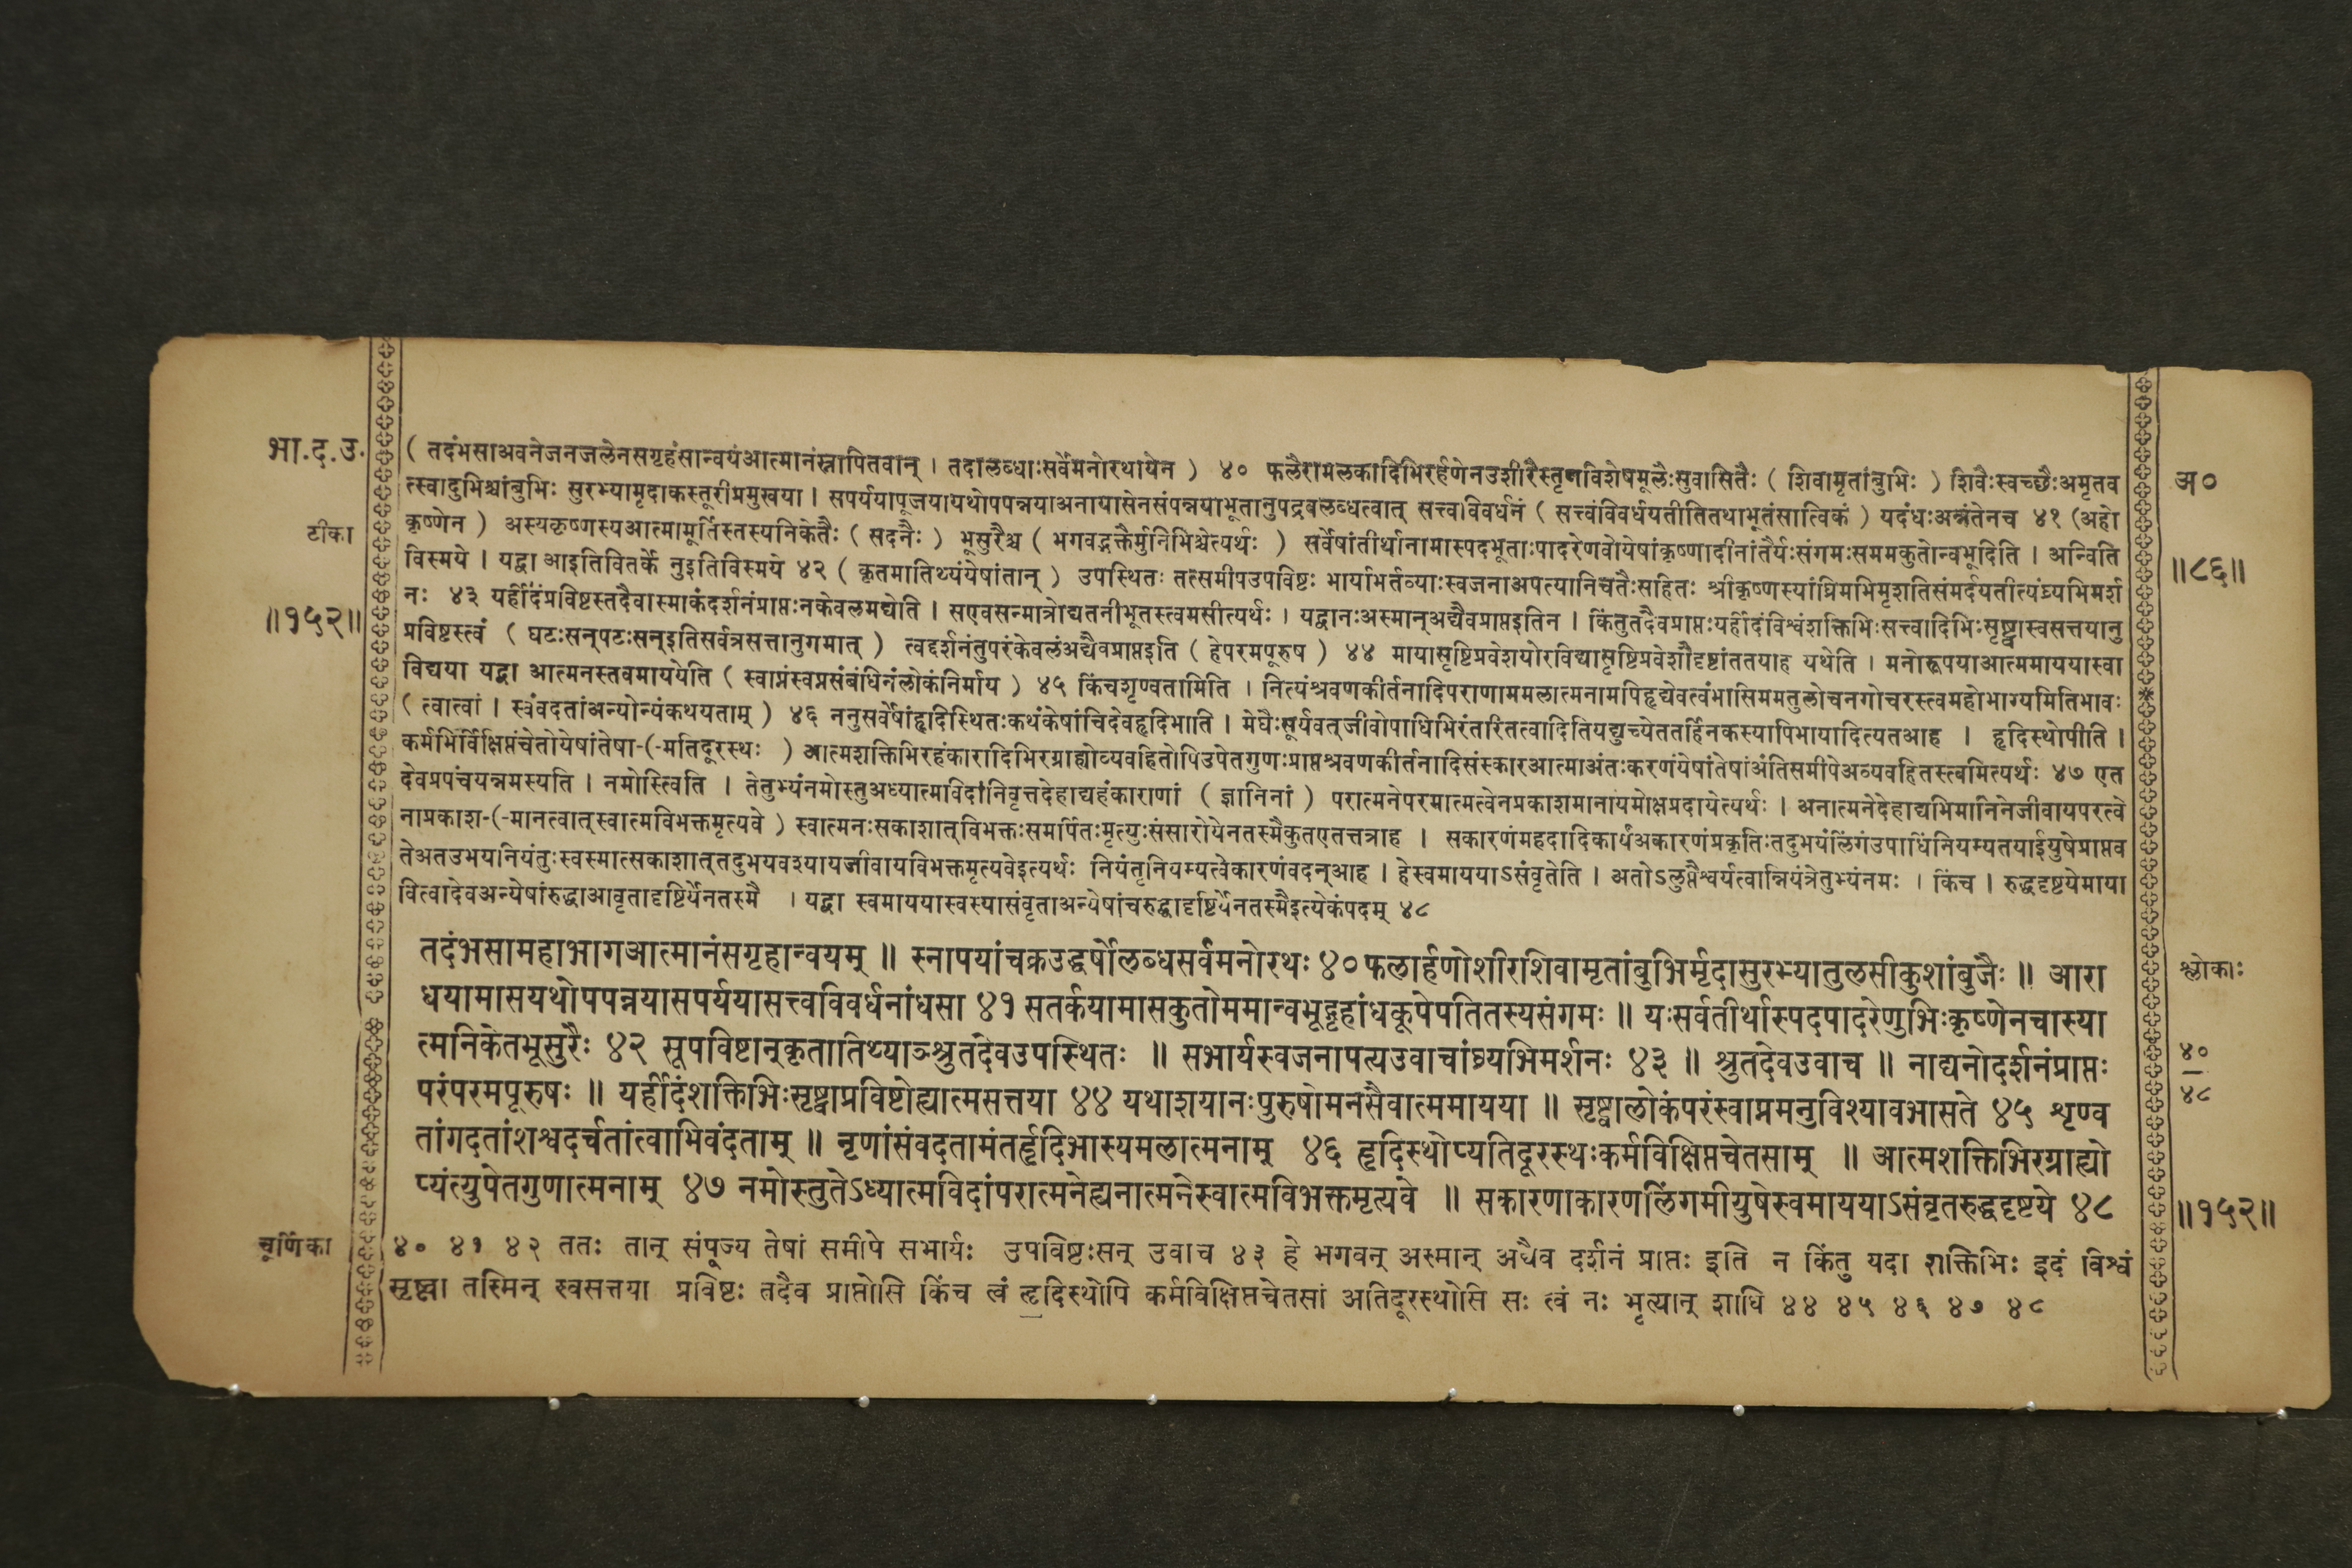 भा.द.उ.
टीका
॥१५२॥
( तदंभसाअवनेजनजलेनसगृहंसान्वयंआत्मानंस्नापितवान् । तदालब्धाःसर्वेमनोरथायेन ) ४० फलैरामलकादिभिरर्हणेनउशीरैस्तृणविशेषमूलैःसुवासितैः ( शिवामृतांबुभिः ) शिवैःस्वच्छैःअमृतव
त्स्वादुभिश्चांबुभिः सुरभ्यामृदाकस्तूरीप्रमुखया । सपर्ययापूजयायथोपपन्नयाअनायासेनसंपन्नयाभूतानुपद्रवलब्धत्वात् सत्त्वविवर्धनं ( सत्त्वंविवर्धयतीतितथाभूतंसात्विकं ) यदंधःअन्नंतेनच ४१ (अहो
कृष्णेन ) अस्यकृष्णस्यआत्मामूर्तिस्तस्यनिकेतैः ( सदनैः ) भूसुरैश्च ( भगवद्भक्तैर्मुनिभिश्चेत्यर्थः ) सर्वेषांतीर्थानामास्पदभूताःपादरेणवोयेषांकृष्णादीनांतैर्यःसंगमःसममकुतोन्वभूदिति । अन्विति
विस्मये । यद्वा आइतिवितर्के नुइतिविस्मये ४२ ( कृतमातिथ्यंयेषांतान् ) उपस्थितः तत्समीपउपविष्टः भार्याभर्तव्याःस्वजनाअपत्यानिचतैःसहितः श्रीकृष्णस्यांघ्रिमभिमृशतिसंमर्दयतीत्यंघ्र्यभिमर्श
नः ४३ यर्हीदंप्रविष्टस्तदैवास्माकंदर्शनंप्राप्तःनकेवलमद्येति । सएवसन्मात्रोद्यतनीभूतस्त्वमसीत्यर्थः । यद्वानःअस्मान्अद्यैवप्राप्तइतिन । किंतुतदैवप्राप्तःयर्हीदंविश्वंशक्तिभिःसत्त्वादिभिःसृष्ट्वास्वसत्तयानु
प्रविष्टस्त्वं ( घटःसन्पटःसन्इतिसर्वत्रसत्तानुगमात् ) त्वद्दर्शनंतुपरंकेवलंअद्यैवप्राप्तइति ( हेपरमपूरुष ) ४४ मायासृष्टिप्रवेशयोरविद्यासृष्टिप्रवेशौदृष्टांततयाह यथेति । मनोरूपयाआत्ममाययास्वा
विद्यया यद्वा आत्मनस्तवमाययेति ( स्वाप्नंस्वप्नसंबंधिनंलोकंनिर्माय ) ४५ किंचशृण्वतामिति । नित्यंश्रवणकीर्तनादिपराणाममलात्मनामपिहृद्येवत्वंभासिममतुलोचनगोचरस्त्वमहोभाग्यमितिभावः
( त्वात्वां । संवदतांअन्योन्यंकथयताम् ) ४६ ननुसर्वेषांहृदिस्थितःकथंकेषांचिदेवहृदिभाति । मेघैःसूर्यवत्जीवोपाधिभिरंतरितत्वादितियद्युच्येततर्हिनकस्यापिभायादित्यतआह । हृदिस्थोपीति ।
कर्मभिर्विक्षिप्तंचेतोयेषांतेषा-(-मतिदूरस्थः ) आत्मशक्तिभिरहंकारादिभिरग्राह्योव्यवहितोपिउपेतगुणःप्राप्तश्रवणकीर्तनादिसंस्कारआत्माअंतःकरणंयेषांतेषांअंतिसमीपेअव्यवहितस्त्वमित्यर्थः ४७ एत
देवप्रपंचयन्नमस्यति । नमोस्त्विति । तेतुभ्यंनमोस्तुअध्यात्मविदांनिवृत्तदेहाद्यहंकाराणां ( ज्ञानिनां ) परात्मनेपरमात्मत्वेनप्रकाशमानायमोक्षप्रदायेत्यर्थः । अनात्मनेदेहाद्यभिमानिनेजीवायपरत्वे
नाप्रकाश-(-मानत्वात्स्वात्मविभक्तमृत्यवे ) स्वात्मनःसकाशात्विभक्तःसमर्पितःमृत्युःसंसारोयेनतस्मैकुतएतत्तत्राह । सकारणंमहदादिकार्यंअकारणंप्रकृतिःतदुभयंलिंगंउपाधिंनियम्यतयाईयुषेप्राप्तव
तेअतउभयनियंतुःस्वस्मात्सकाशात्तदुभयवश्यायजीवायविभक्तमृत्यवेइत्यर्थः नियंतृनियम्यत्वेकारणंवदन्आह । हेस्वमाययाऽसंवृतेति । अतोऽलुप्तैश्वर्यत्वान्नियंत्रेतुभ्यंनमः । किंच । रुद्धदृष्टयेमाया
वित्वादेवअन्येषांरुद्धाआवृतादृष्टिर्येनतस्मै । यद्वा स्वमाययास्वस्यासंवृताअन्येषांचरुद्धादृष्टिर्येनतस्मैइत्येकंपदम् ४८
तदंभसामहाभागआत्मानंसगृहान्वयम् ॥ स्नापयांचक्रउद्धर्षोलब्धसर्वमनोरथः ४० फलार्हणोशीरशिवामृतांबुभिर्मृदासुरभ्यातुलसीकुशांबुजैः ॥ आरा
धयामासयथोपपन्नयासपर्ययासत्त्वविवर्धनांधसा ४१ सतर्कयामासकुतोममान्वभूद्गृहांधकूपेपतितस्यसंगमः ॥ यःसर्वतीर्थास्पदपादरेणुभिःकृष्णेनचास्या
त्मनिकेतभूसुरैः ४२ सूपविष्टान्कृतातिथ्याञ्श्रुतदेवउपस्थितः ॥ सभार्यस्वजनापत्यउवाचांघ्र्यभिमर्शनः ४३ ॥ श्रुतदेवउवाच ॥ नाद्यनोदर्शनंप्राप्तः
परंपरमपूरुषः ॥ यर्हीदंशक्तिभिःसृष्ट्वाप्रविष्टोह्यात्मसत्तया ४४ यथाशयानःपुरुषोमनसैवात्ममायया ॥ सृष्ट्वालोकंपरंस्वाप्नमनुविश्यावभासते ४५ शृण्व
तांगदतांशश्वदर्चतांत्वाभिवंदताम् ॥ नृणांसंवदतामंतर्हृदिभास्यमलात्मनाम् ४६ हृदिस्थोप्यतिदूरस्थःकर्मविक्षिप्तचेतसाम् ॥ आत्मशक्तिभिरग्राह्यो
प्यंत्युपेतगुणात्मनाम् ४७ नमोस्तुतेऽध्यात्मविदांपरात्मनेह्यनात्मनेस्वात्मविभक्तमृत्यवे ॥ सकारणाकारणलिंगमीयुषेस्वमाययाऽसंवृतरुद्धदृष्टये ४८
चूर्णिका
४० ४१ ४२ ततः तान् संपूज्य तेषां समीपे सभार्यः उपविष्टःसन् उवाच ४३ हे भगवन् अस्मान् अद्यैव दर्शनं प्राप्तः इति न किंतु यदा शक्तिभिः इदं विश्वं
सृष्ट्वा तस्मिन् स्वसत्तया प्रविष्टः तदैव प्राप्तोसि किंच त्वं हृदिस्थोपि कर्मविक्षिप्तचेतसां अतिदूरस्थोसि सः त्वं नः भृत्यान् शाधि ४४ ४५ ४६ ४७ ४८
अ०
॥८६॥
श्लोकाः
४०
४८
॥१५२॥